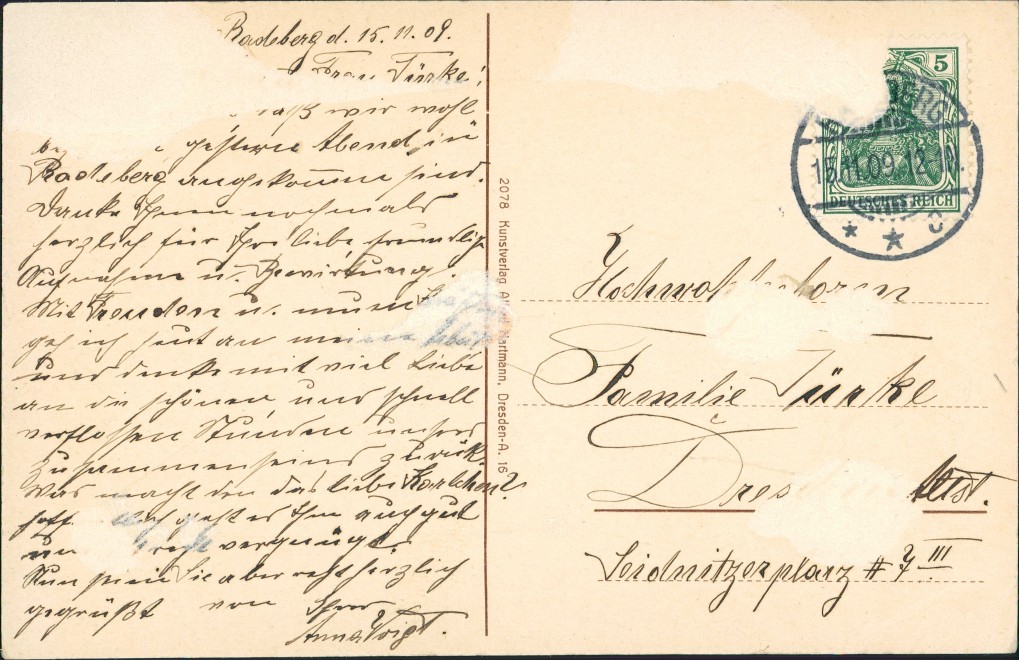 Radeberg d. 15.11.09.
Frau Türke!
daß wir wohl
gestern Abend in
Radeberg angekomme sind.
Danke Ihnen nochmals
herzlich für Ihre liebe freundliche
Aufnahme u. Bewirtung.
Mit Freuden u.
geh ich heut an meine
und denke mit viel Liebe
an die schönen und schnell
verflossen Stunden unsres
Zusammenseins zurück.
Was macht den das liebe Karlchen?
hoff. geht es Ihm auch gut
un recht vergnügt.
Nun seien Sie aber recht herzlich
gegrüßt von Ihrer
Anna Voigt.
2078 Kunstverlag Hartmann, Dresden-A. 16
5
DEUTSCHES REICH
BERG
15.11.09.12-1N.
* * c
Hochwohlgeboren
Familie Türke
Dres Altst.
Seidnitzerplarz # 7 III